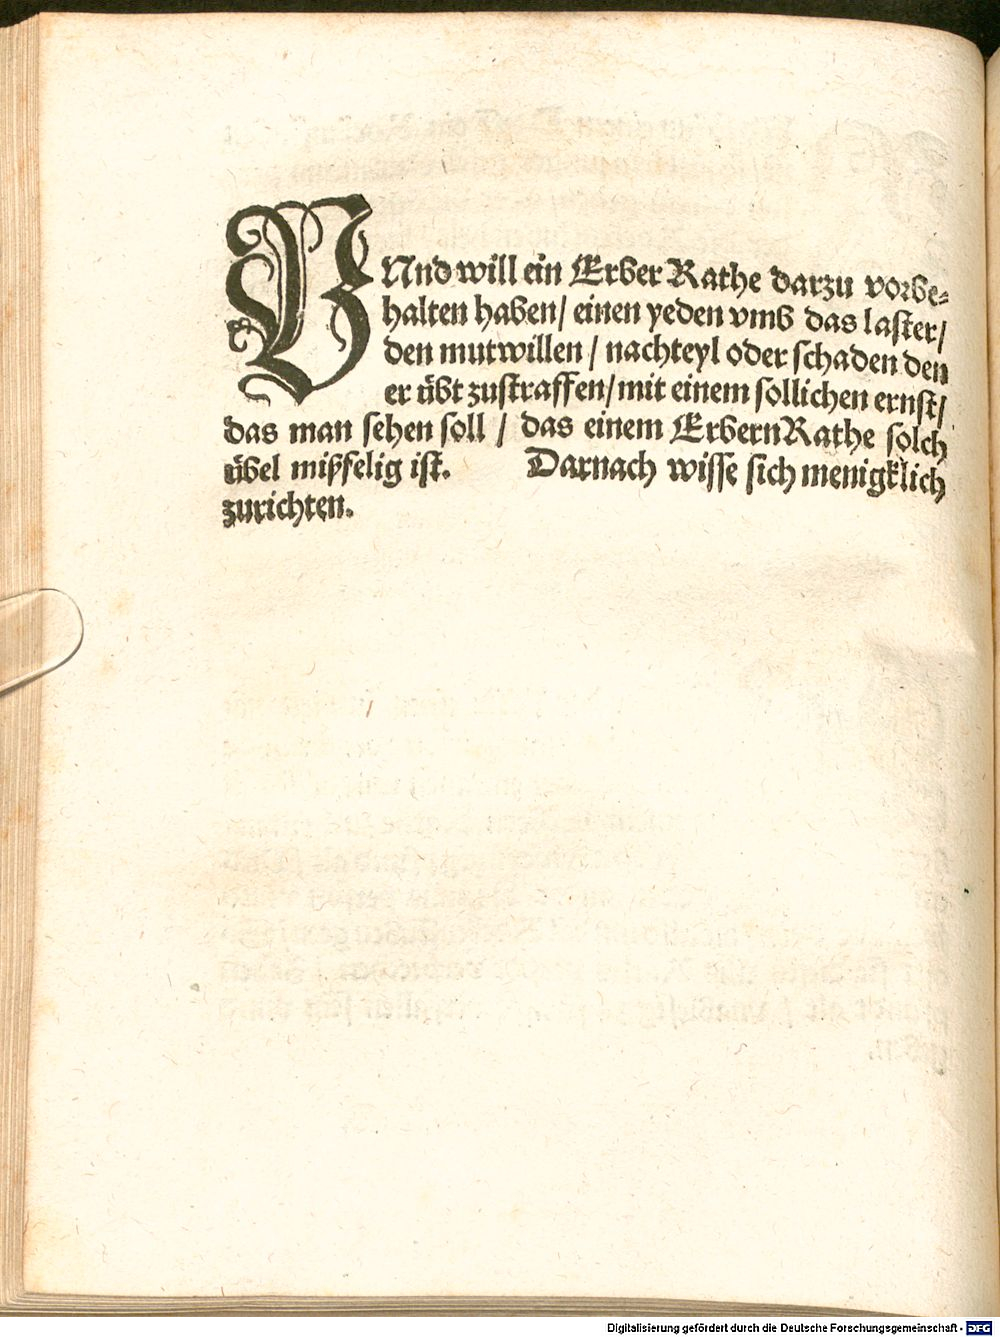 VNnd will ein Erber Rathe darzu vorbe⸗
halten haben / einen yeden vmb das laster /
den mutwillen / nachteyl oder schaden den
er uͤbt zustraffen / mit einem sollichen ernst /
das man sehen soll / das einem Erbern Rathe solch
uͤbel mißfelig ist. Darnach wisse sich menigklich
zurichten.
Digitalisierung gefördert durch die Deutsche Forschungsgemeinschaft - DFG